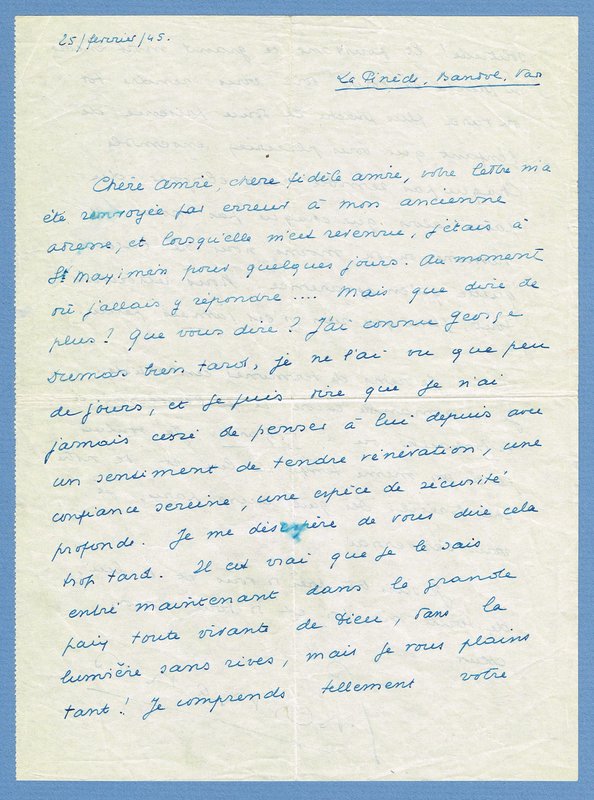 25/février/45.
La Pinède, Bandol, Var
Chère Amie, chère fidèle amie, votre lettre m'a
été renvoyée par erreur à mon ancienne
adresse, et lorsqu'elle m'est revenue, j'étais à
St Maximin pour quelques jours. Au moment
où j'allais y répondre .... Mais que dire de
plus ? Que vous dire ? J'ai connu George
Dumas bien tard, je ne l'ai vu que peu
de jours, et je puis dire que je n'ai
jamais cessé de penser à lui depuis avec
un sentiment de tendre vénération, une
confiance sereine, une espèce de sécurité
profonde. Je me désespère de vous dire cela
trop tard. Il est vrai que je le sais
entré maintenant dans la grande
paix toute vivante de Dieu, dans la
lumière sans rives, mais je vous plains
tant ! Je comprends tellement votre